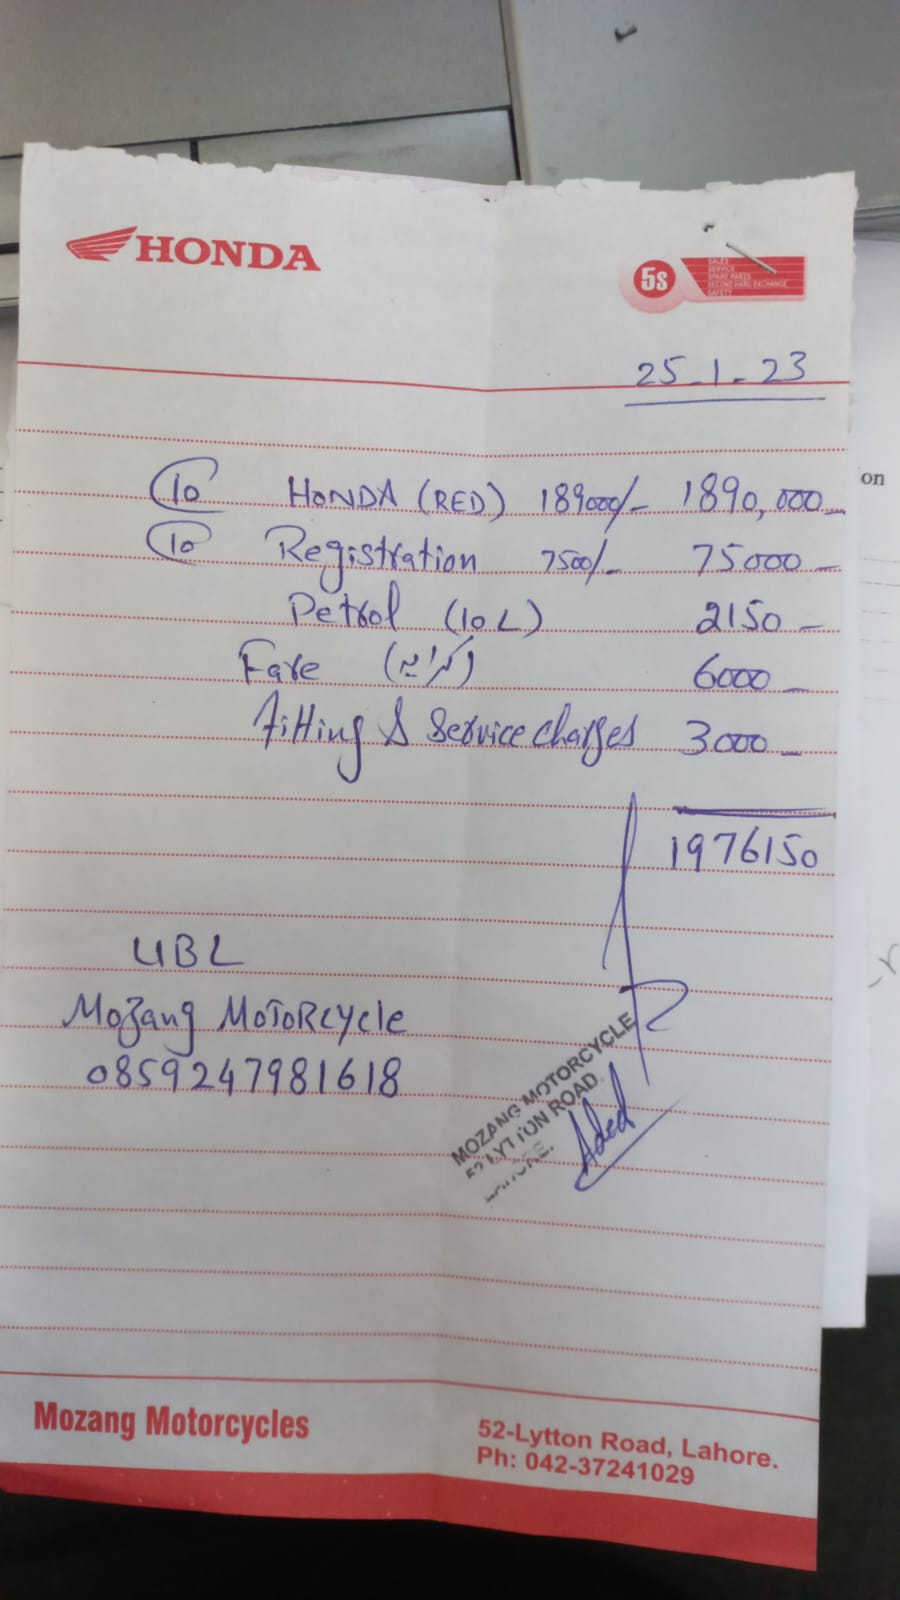 HONDA
5s
SALES
SERVICE
SPARE PARTS
SECOND HAND EXCHANGE
SAFETY
25-1-23
on
10 HONDA (RED) 189000/- 1890,000-
10 Registration 7500/- 75000-
Petrol (10L) 2150-
Fare (کرایہ) 6000-
Fitting & Service charges 3000-
1976150
UBL
Mozang MotoRcycle
0859247981618
MOZANG MOTORCYCLE
52 LYTTON ROAD
LAHORE.
Mozang Motorcycles
52-Lytton Road, Lahore.
Ph: 042-37241029